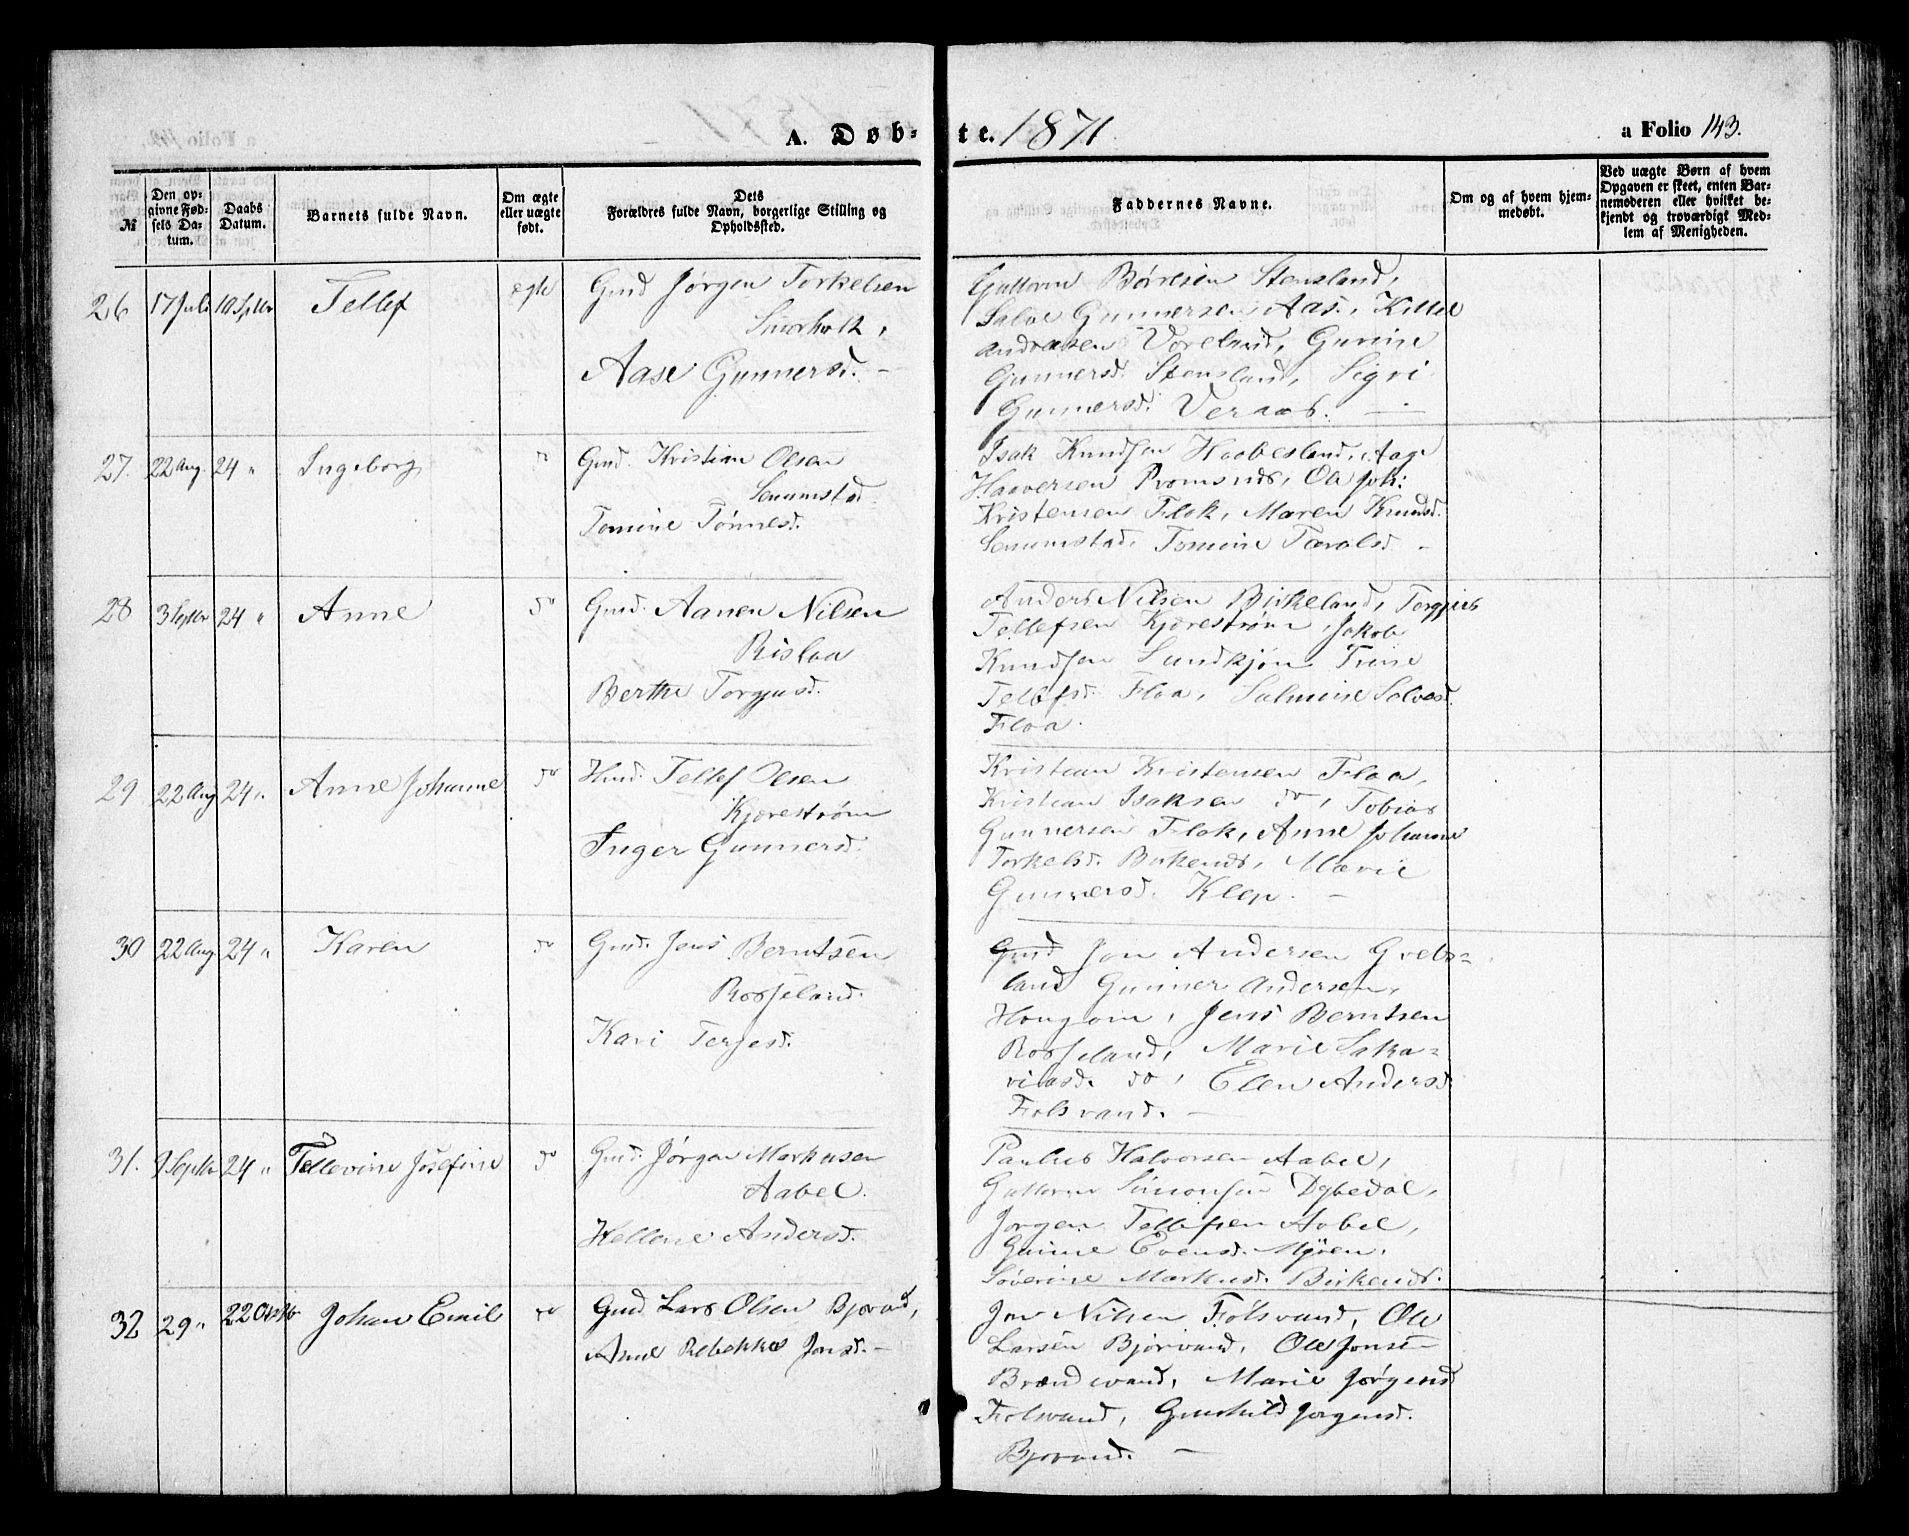 A. Døb-te. 1871
a Folio 143.
№
Den opgivne Fødsels Datum.
Daabs Datum.
Barnets fulde Navn.
Om ægte eller uægte født.
Dets Forældres fulde Navn, borgerlige Stilling og Opholdssted.
Faddernes Navne.
Om og af hvem hjemmedøbt.
Ved uægte Børn af hvem Opgaven er skeet, enten Barnemoderen eller hvilket bekjendt og troværdigt Medlem af Menigheden.
26 17 Juli 10 Septbr Tellef ægte Gmd Jørgen Torkelsen
Aase Gunnersd. -
Guttorm Børresen Stensland,
Salve Gunnersen Aas, Kittel
Andreasen Voreland, Gurine
Gunnersd. Stensland, Sigri
Gunnersd. Veraas. -
27. 22 Aug. 24 " Ingeborg " Gmd. Kristian Olsen
Senumstad.
Tomine Tønnesd.
Isak Knudsen Haabesland, Aage
Haaversen Romsnds, Ole Joh:
Kristensen Flak, Maren Knudsd.
Senumstad, Tomine Taralsd. -
28 3 Septbr 24 " Anne do Gmd. Aanen Nilsen
Rislaa
Berthe Torgjusd.
Anders Nilsen Birkeland, Torgjus
Tellefsen Kjærestrøm, Jakob
Knudsen Sundkjøn, Trine
Tellefsd. Flaa, Salmine Salvesd.
Flaa.
29 22 Aug 24 " Anne Johanne do Husd. Tellef Olsen
Kjærestrøm
Inger Gunnersd.
Kristian Kristensen Flaa,
Kristian Isaksen do, Tobias
Gunnersen Flak, Anne Johanne
Torkelsd. Birkends, Marie
Gunnersd. Klep. -
30 22 Aug. 24 " Karen do Gmd. Jens Berntsen
Rosseland.
Kari Terjesd.
Gmd Jon Andersen Grebs=
land Gunner Andersen,
Hougom, Jens Berntsen
Rosseland, Marie Saka=
riasd. do, Elen Andersd.
Folsvand. -
31. 9 Septbr 24 " Tellevine Josefine do Gmd. Jørgen Markusen
Aabel.
Hellene Andersd.
Paulus Halvorsen Aabel,
Guttorm Simonsen Dybedal,
Jørgen Tellefsen Aabel,
Gunne Evensd. Myren,
Søverine Markusd. Birkends.
32 29 " 22 Oktbr Johan Emil do Gmd Lars Olsen Bjorvand,
Anne Rebekka Jonsd. -
Jon Nilsen Folsvand, Ole
Larsen Bjorvand, Ole Jonsen
Brændvand, Marie Jørgensd
Folsvand, Gunhild Jørgensd.
Bjorvand. -